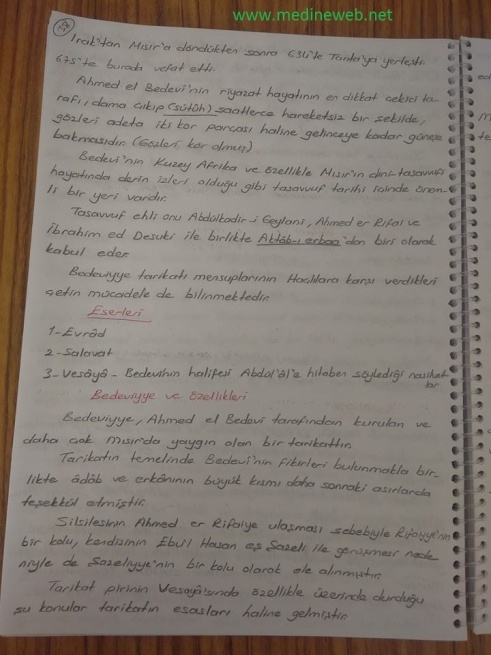 www.medineweb.net
Irak'tan Mısır'a döndükten sonra 634'te Tanta'ya yerleşti.
675'te burada vefat etti.
Ahmed el Bedevi'nin riyazat hayatının en dikkat çekici ta-
rafı, dama çıkıp (sütûh) saatlerce hareketsiz bir şekilde,
gözleri adeta iki kor parçası haline gelinceye kadar güneşe
bakmasıdır. (Gözleri kör olmuş)
Bedevi'nin Kuzey Afrika ve özellikle Mısır'ın dini-tasavvufi
hayatında derin izleri olduğu gibi tasavvuf tarihi içinde önem-
li bir yeri vardır.
Tasavvuf ehli onu Abdülkadir-i Geylani, Ahmed er Rifai ve
İbrahim ed Desuki ile birlikte Aktâb-ı erbaa'dan biri olarak
kabul eder.
Bedeviyye tarikatı mensuplarının Haçlılara karşı verdikleri
çetin mücadele de bilinmektedir.
Eserleri
1- Evrâd
2- Salavat
3- Vesâyâ - Bedevi'nin halifesi Abdül'âl'e hitaben söylediği nasihat
lar
Bedeviyye ve Özellikleri
Bedeviyye, Ahmed el Bedevi tarafından kurulan ve
daha çok Mısır'da yaygın olan bir tarikattır.
Tarikatın temelinde Bedevi'nin fikirleri bulunmakla bir-
likte âdâb ve erkânının büyük kısmı daha sonraki asırlarda
teşekkül etmiştir.
Silsilesinin Ahmed er Rifaiye ulaşması sebebiyle Rifaiyye'nin
bir kolu, kendisinin Ebu'l Hasan eş Şazeli ile görüşmesi nede
niyle de Şazeliyye'nin bir kolu olarak ele alınmıştır.
Tarikat pirinin Vesâyâ'sında özellikle üzerinde durduğu
şu konular tarikatın esasları haline gelmiştir.